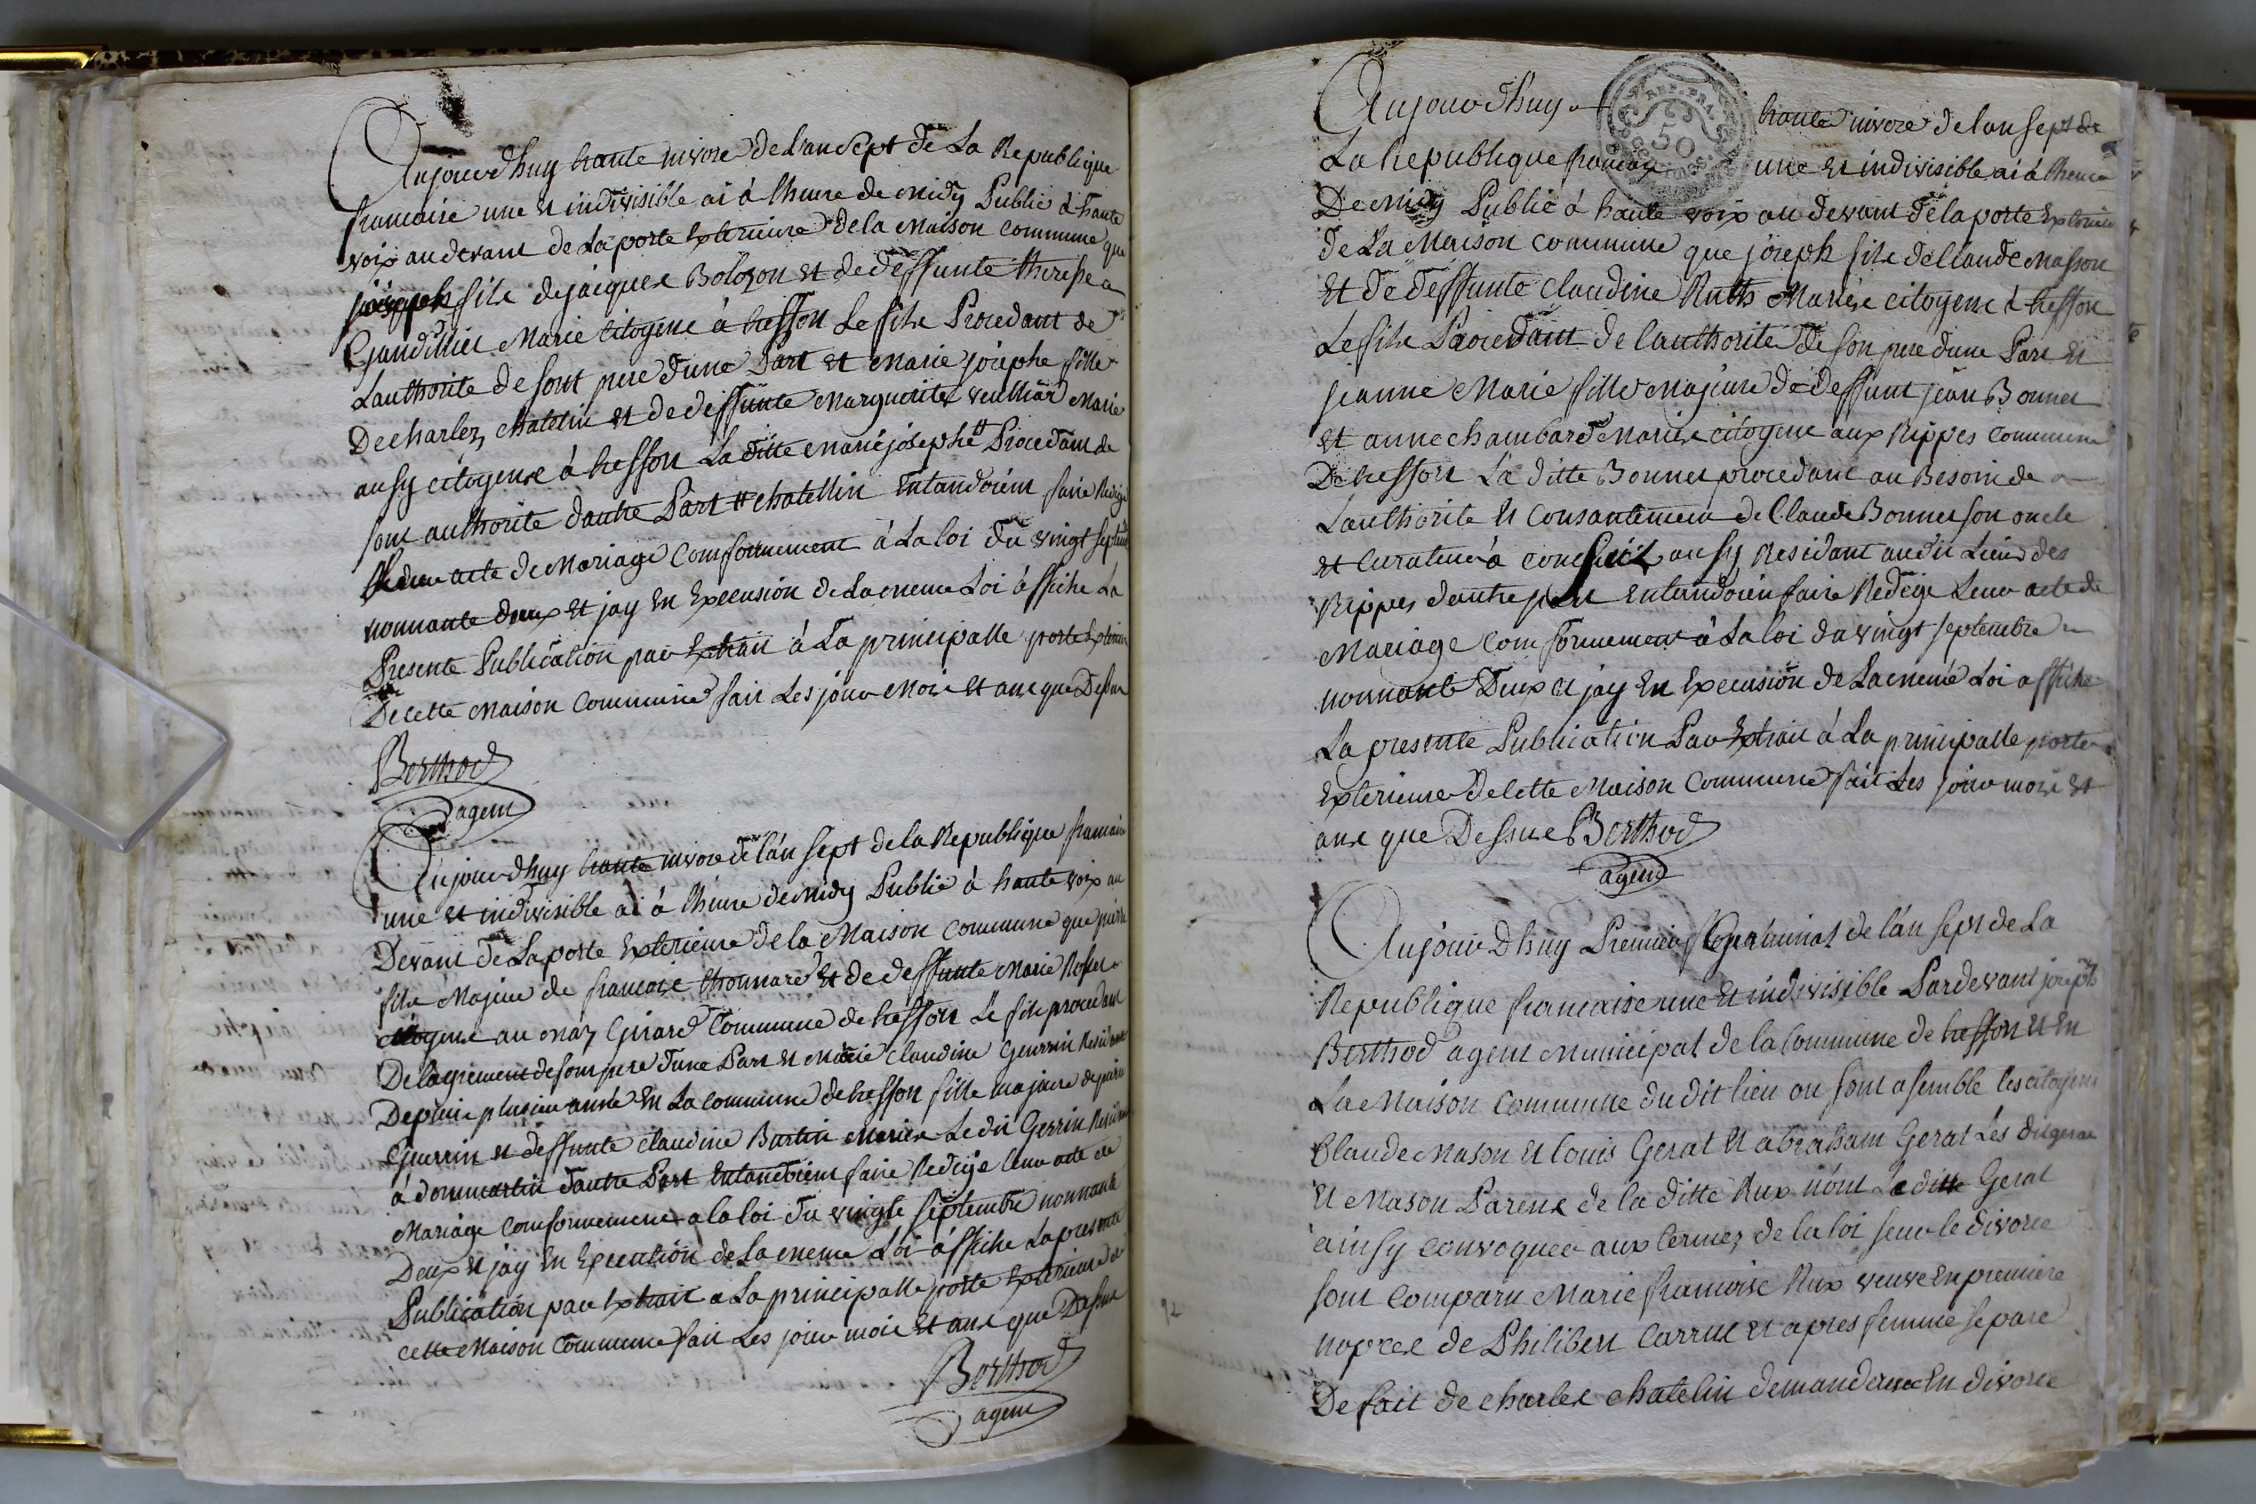 Aujourdhuy trante nivose de lan sept de La Republique
francaise une et indivisible ai à lheure de midy Publié à haute
voix audevant de La porte Exterieure de la Maison commune que
joseph fils de jacques Bolozon et de deffunte therese
Gandillet Marié citoyens à tresson Le fils Procedant de
Lauthorité de sont pere dune Part et Marie josephe fille
De charlez chatelin et de deffunte Marguerite veulliard Mariés
ausy citoyens à tresson La ditte marie josephe # Procedant de
sont authorité dautre Part # chatellin Entandoient faire Redige
Leur acte de Mariage Comformement à La loi du vingt septembre
nonnante deux et jay En Execusion de La meme Loi affiche La
Presente Publication par Extrait à La principalle porte Exterieure
De cette Maison Commune fait Les jour Mois et ans que Dessus
Berthod
agent
Aujourdhuy trante nivose de lan sept de la Republique francaise
une et indivisible ai à lheure de midy Publié à haute voix au
Devant de La porte Exterieure de la Maison commune que pierre
fils Majeur de francois thonnard Et de deffunte Marie Rosset
citoyens au maz Girard Commune de tresson Le fils procedant
De lagrement de son pere dune Part et Marie claudine Geurrin Residante
Depuis plusieur anné En La commune de tresson fille majeure de pierre
Guerrin et deffunte claudine Burtin Mariés Le dit Gerrin Residant
à dommartin dautre Part Entandoient faire Redige leur acte de
Mariage Comformement a la loi du vingte septembre nonnante
Deux et jay En Execution de la meme Loi affiche La presente
Publication par Extrait a La principalle porte Exterieure de
cette Maison Commune fait Les jour mois et ans que Dessus
Berthod
agent
REP. FRA.
50
Aujourdhuy trante nivose de lan sept de
La Republique francaise une et indivisible ai à lheure
De midy Publié à haute voix au devant de la porte Exterieure
de La Maison commune que joseph fils de Claude Masson
Et de deffunte claudine Ruths Mariés citoyens à tresson
Le fils Procedant de lauthorité de son pere dune Part et
jeanne Marie fille Majeure de deffunt jean Bonnet
et anne chambard Mariés citoyens aux Rippes commune
De tresson La ditte Bonnet procedant au Besoin de
Lauthorité et Consantement de Claude Bonnet son oncle
et Curateur à conseil ausy Residant audit Lieu des
Rippes dautre part Entandoien faire Redige Leur acte de
Mariage Comformement à La loi du vingt septembre
nonnante Deux et jay En Execusion de La meme Loi affiche
La presente Publication Par Extrait à La principalle porte
Exterieure de cette Maison Commune fait Les jour mois et
ans que Dessus Berthod
agent
Aujour Dhuy Premier Germinal de lan sept de La
Republique francaise une et indivisible Pardevant joseph
Berthod agent Municipal de la Commune de tresson et En
La Maison Commune du dit lieu ou sont asemble les citoyens
Claude Mason et louis Gerat et abraham Gerat Les dit gerat
et Mason Parens de la ditte Rux Le ditte Gerat
ainsy convoquer aux termez de la loi seur le divorce
sont Comparu Marie francoise Rux veuve En premiere
nopces de Philibert Carrut et apres femme separé
De fait de charles chatelin demanderese En divorce
92